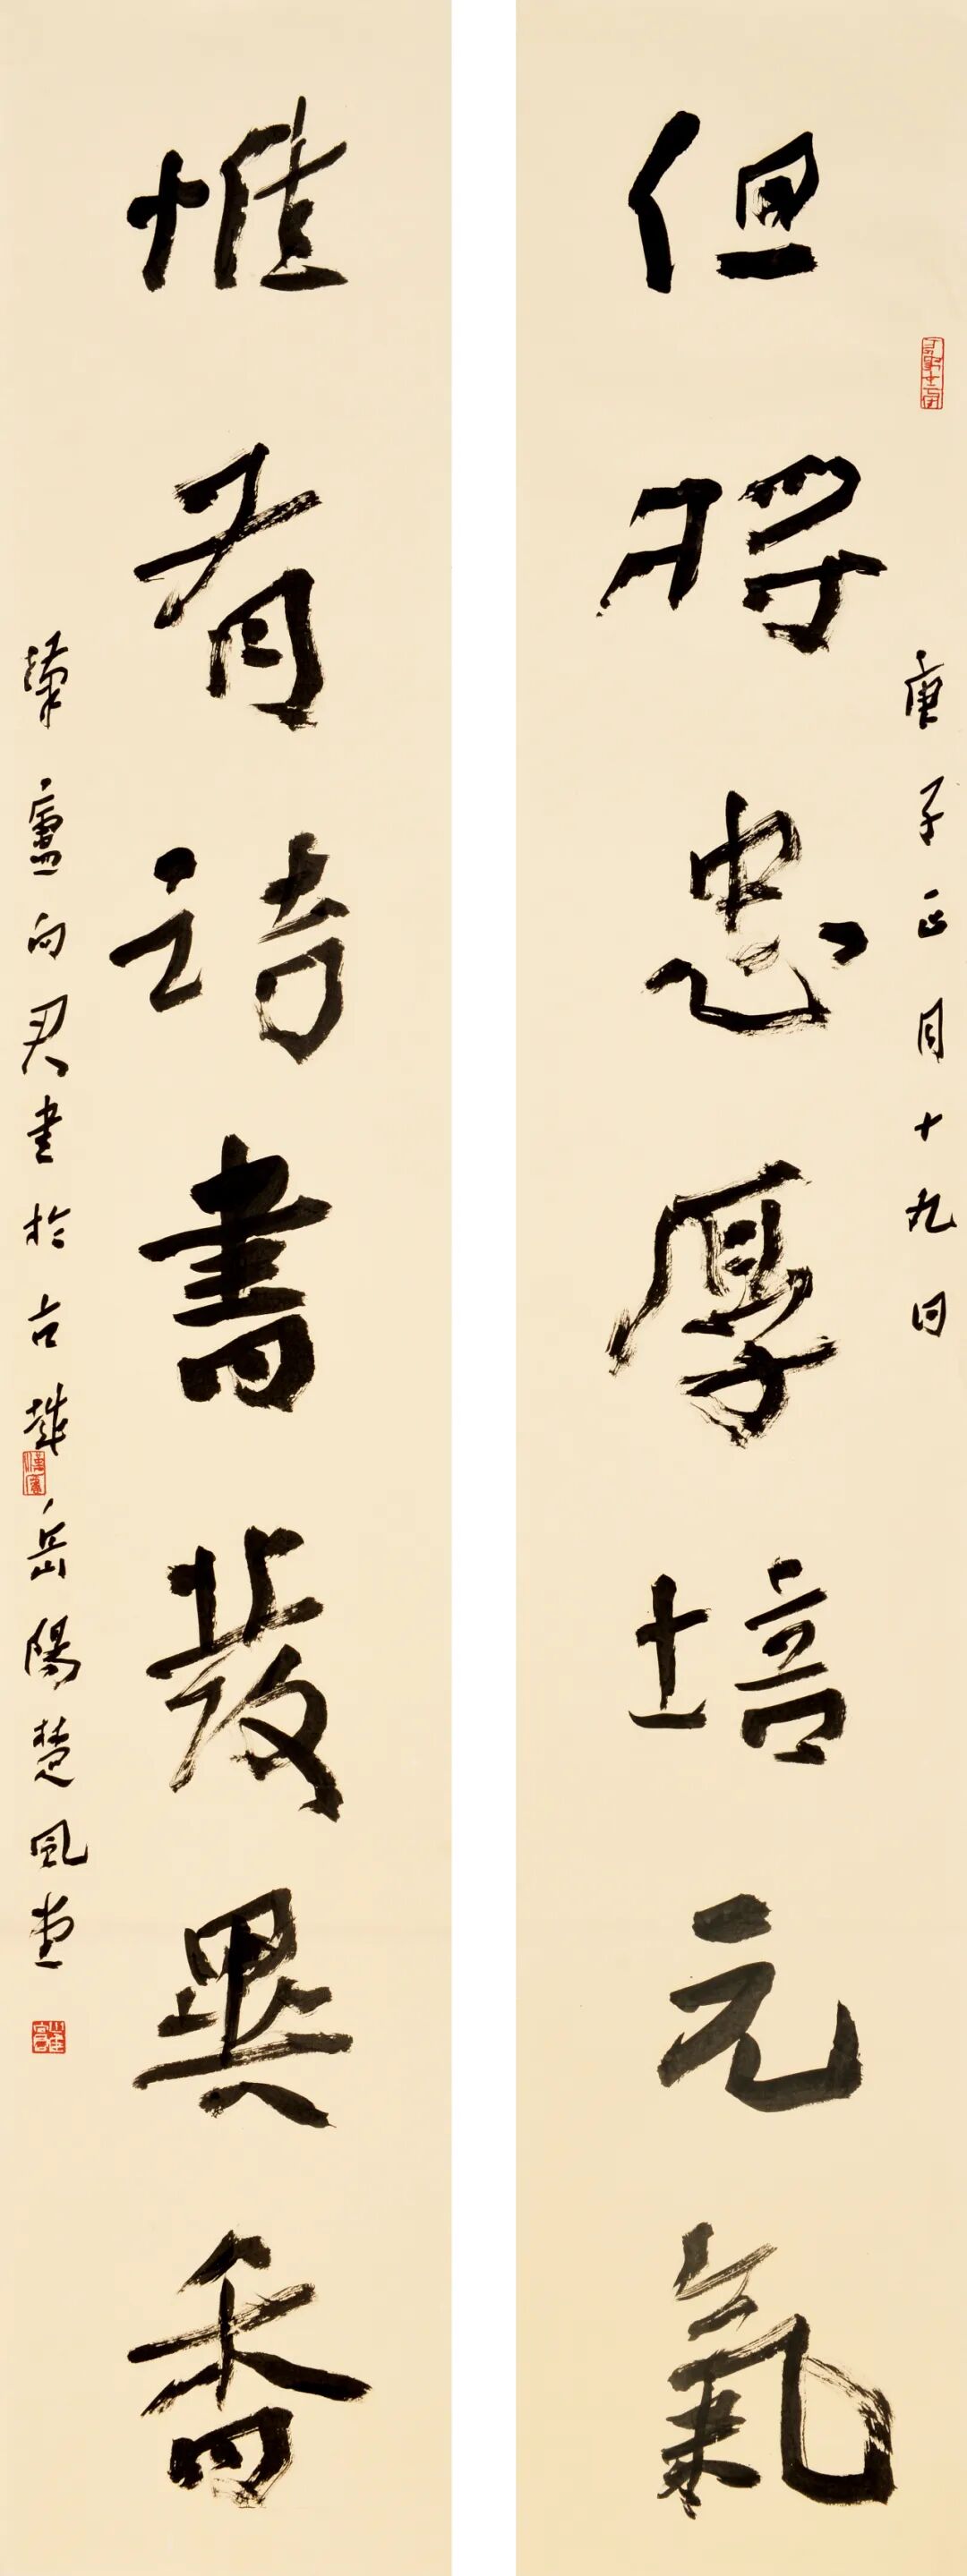 庚子正月十九日
但將忠厚培元氣
惟有詩書發異香
廬向君書於古越岳陽楚風堂